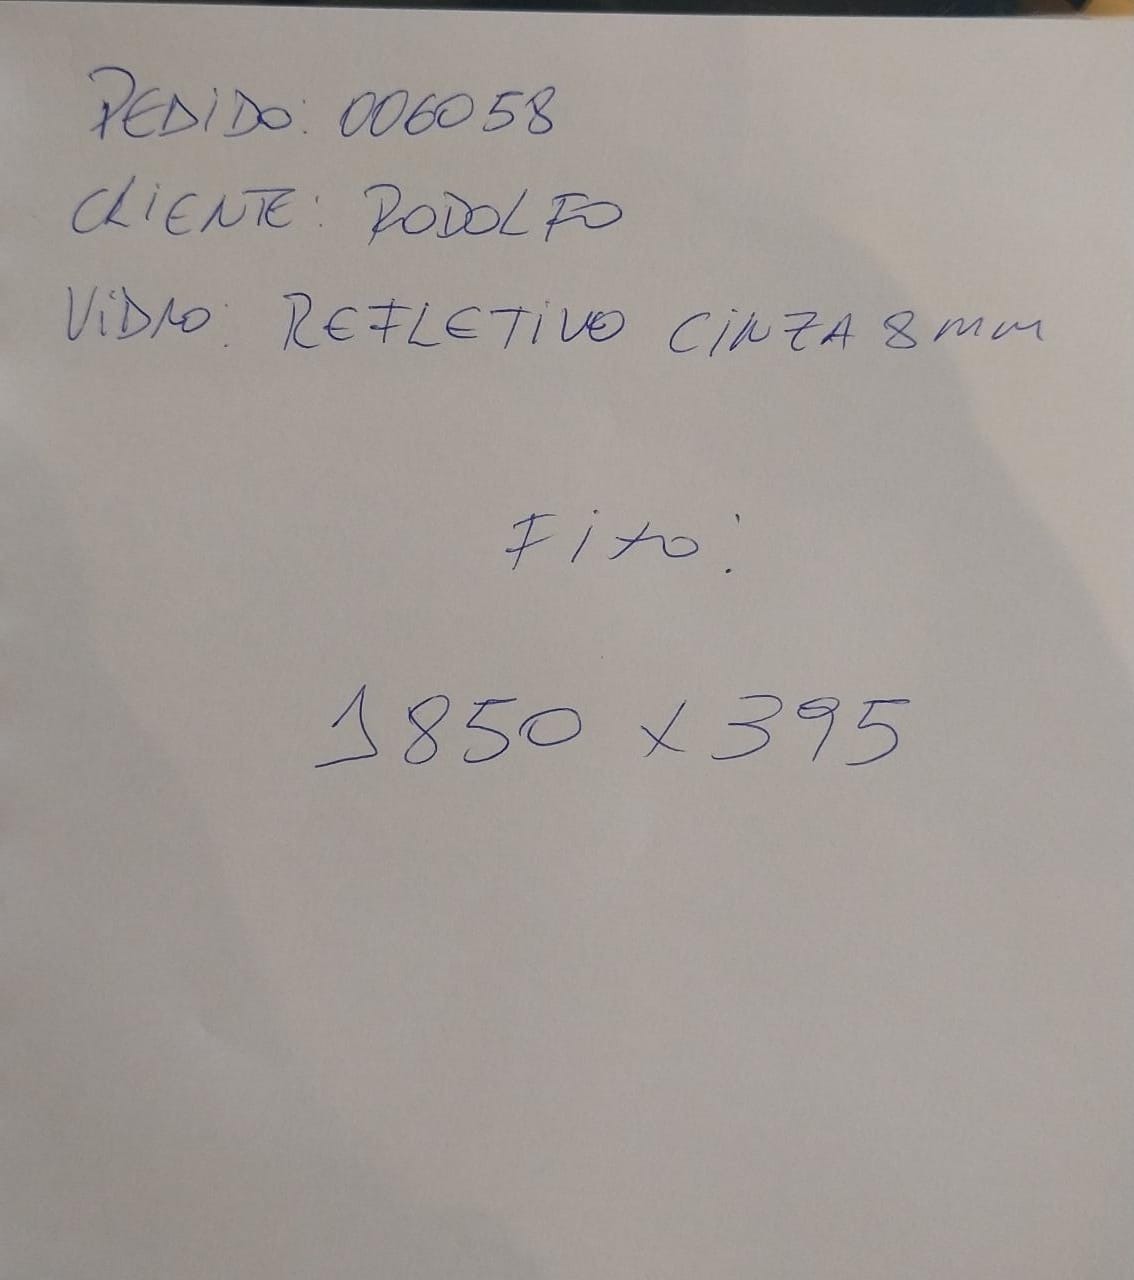 PEDIDO: 006058
CLIENTE: RODOLFO
VIDRO: REFLETIVO CINZA 8mm
Fixo:
1850 x 395